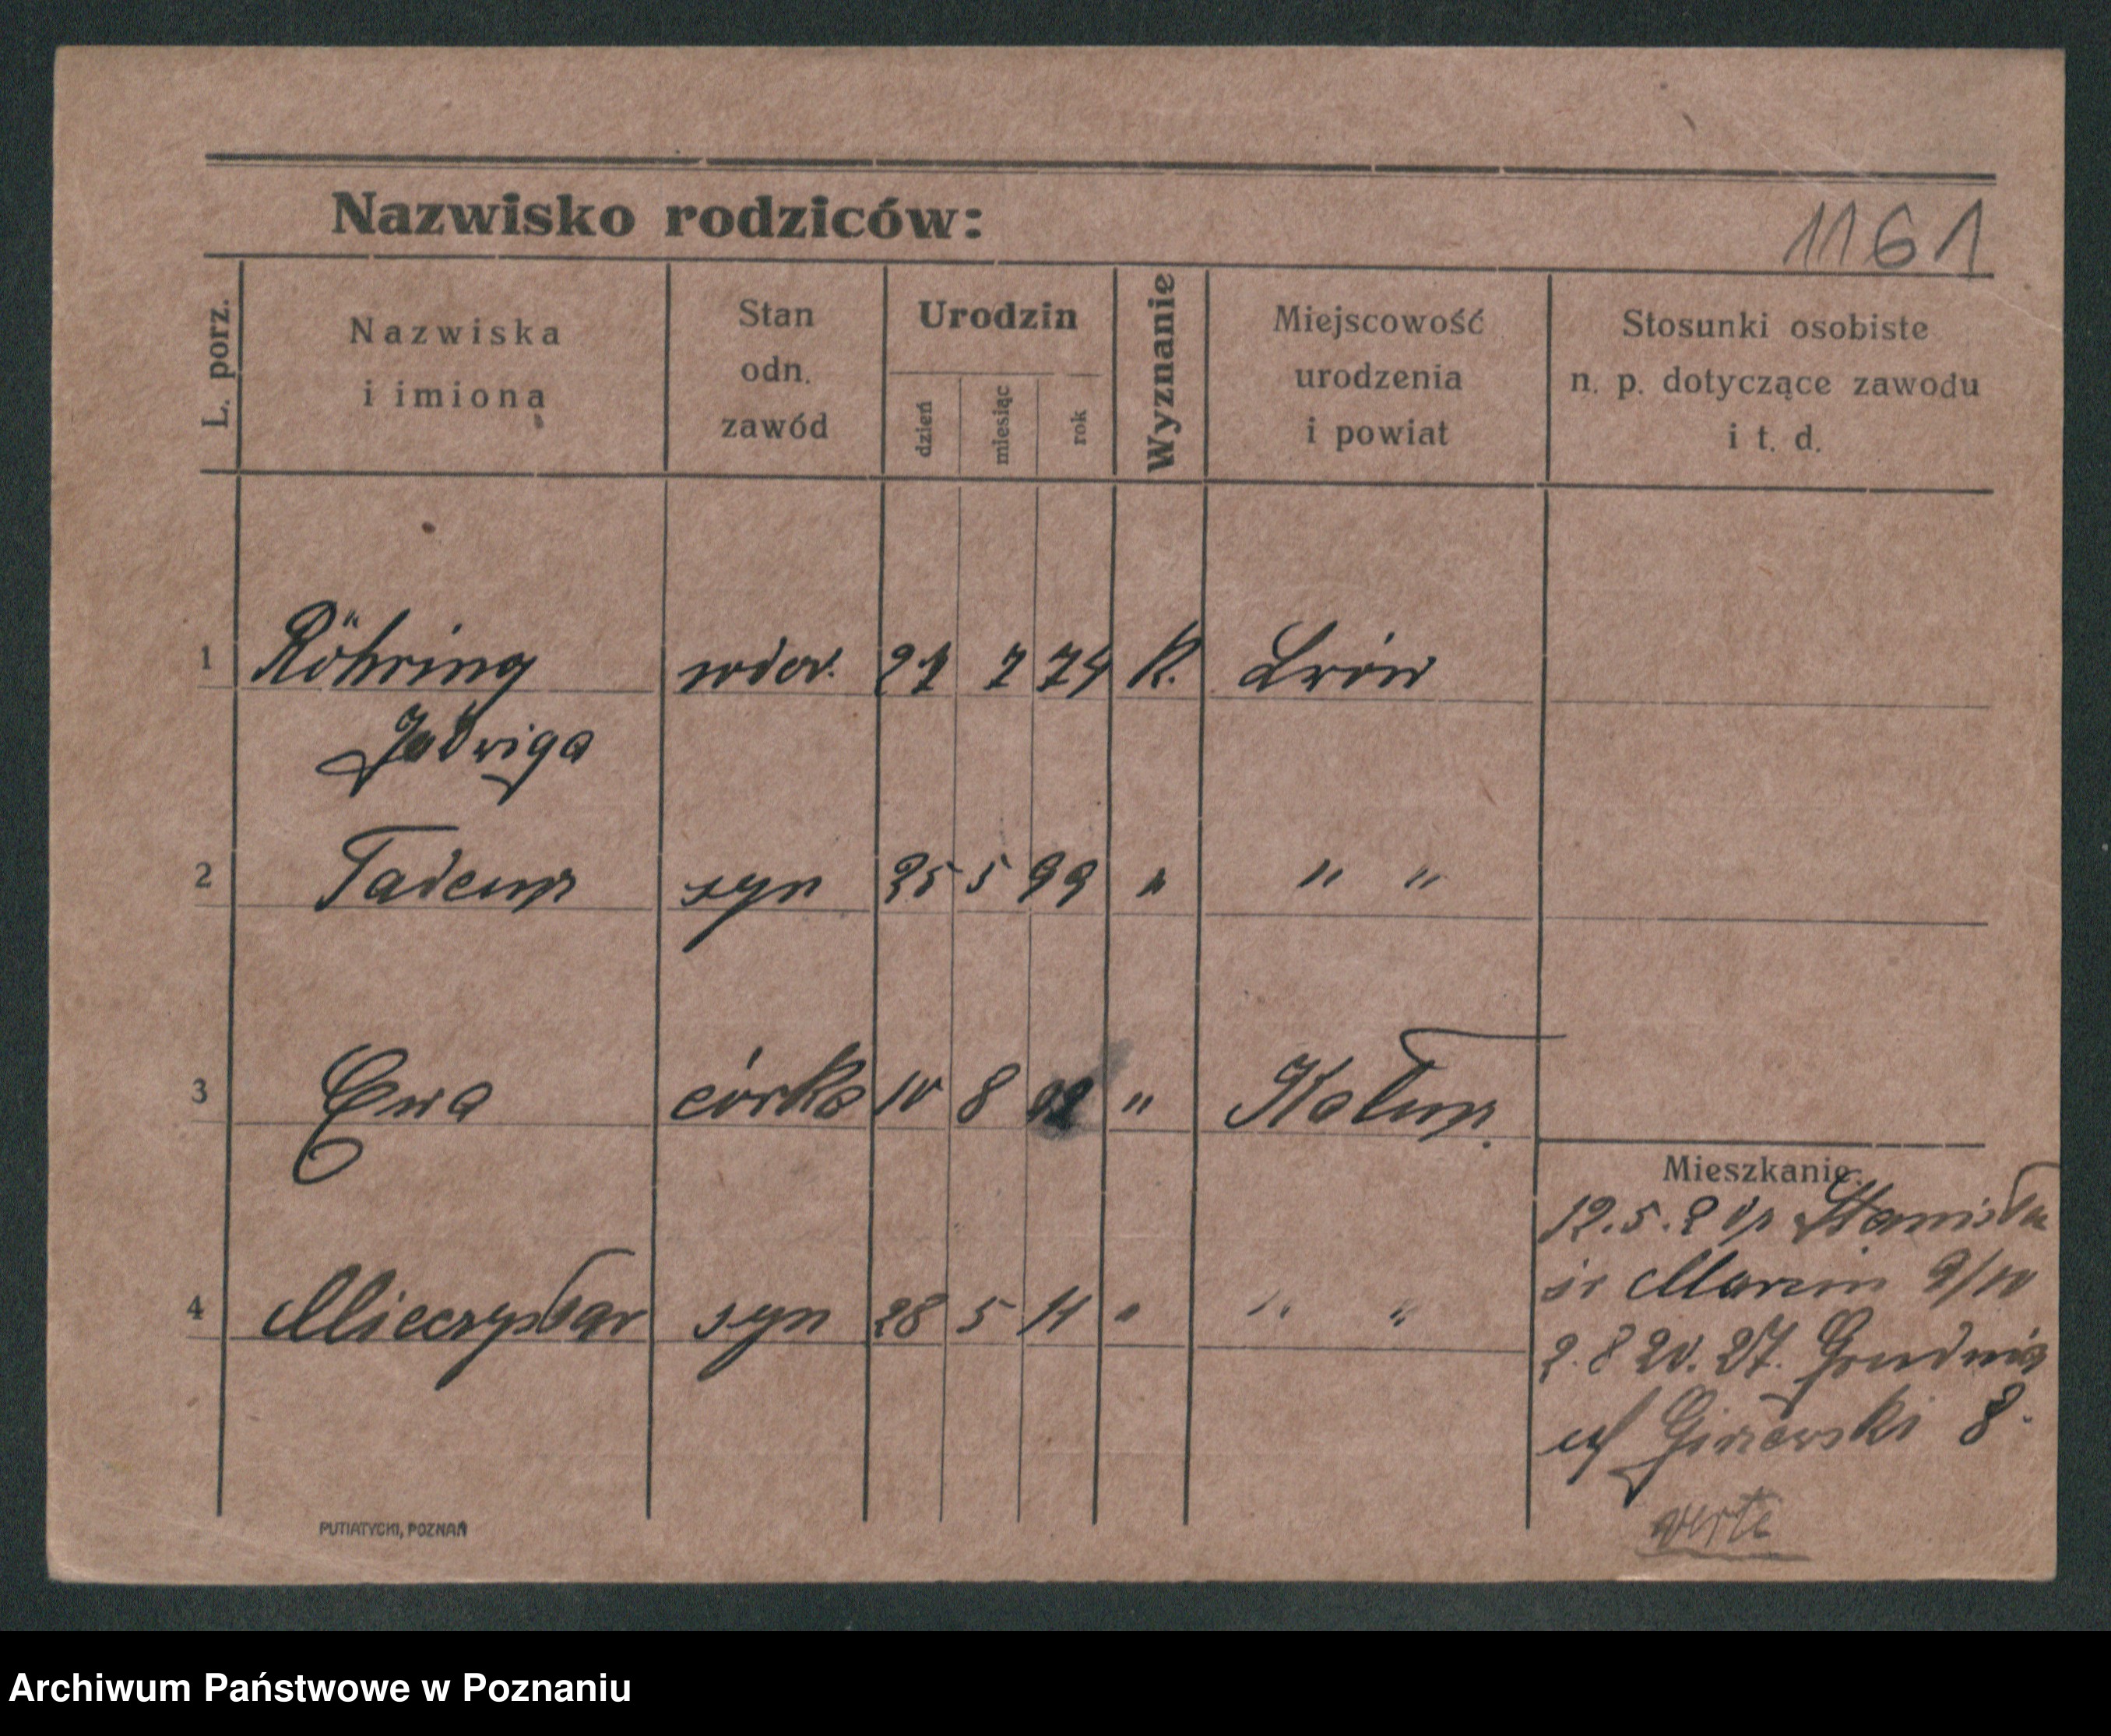 Nazwisko rodziców:
1161
L. porz.
Nazwiska
i imiona
Stan
odn.
zawód
Urodzin
dzień
miesiąc
rok
Wyznanie
Miejscowość
urodzenia
i powiat
Stosunki osobiste
n. p. dotyczące zawodu
i t. d.
1 Röhring wdow. 21 7 74 K. Lwów
Jadwiga
2 Tadeusz syn 25 5 99 " " "
3 Ewa córka 10 8 " Kałusz.
Mieszkanie:
12.5.20
Marcin 9/10
4 Mieczysław syn 28 5 11 " " "
2.8 20. 27. Grudnia
Giżewski 8.
verte
PUTIATYCKI, POZNAŃ
Archiwum Państwowe w Poznaniu